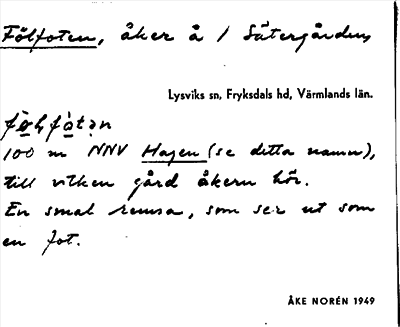 Fölfoten, åker å 1 Sätergården,
Lysviks sn, Fryksdals hd, Värmlands län.
100 m NNV Hagen (se detta namn),
till vilken gård åkern hör.
En smal remsa, som ser ut som
en fot.
ÅKE NORÉN 1949